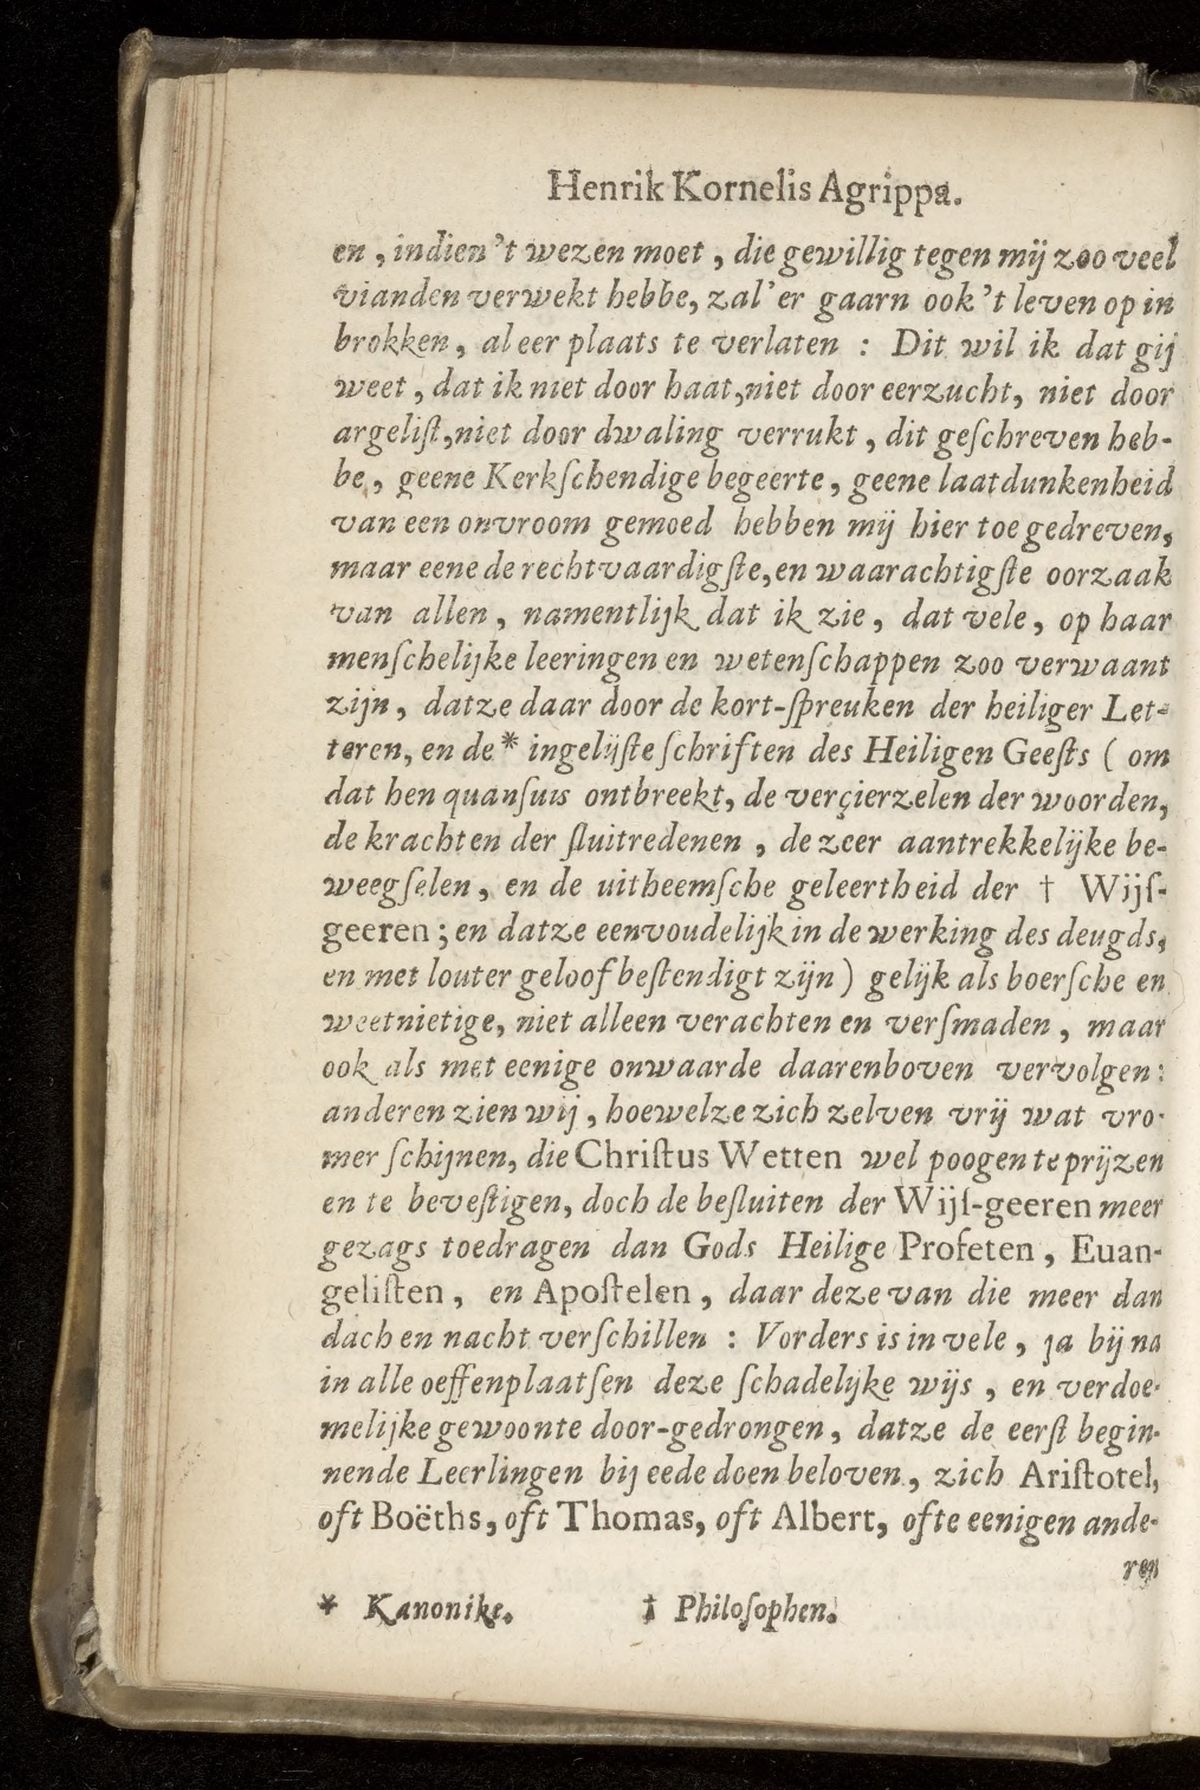 Henrik Kornelis Agrippa.
en, indien't wezen moet, die gewillig tegen mij zoo veel
vianden verwekt hebbe, zal'er gaarn ook 't leven op in
brokken, al eer plaats te verlaten : Dit wil ik dat gij
weet, dat ik niet door haat, niet door eerzucht, niet door
argeliſt, niet door dwaling verrukt, dit geſchreven heb-
be, geene Kerkſchendige begeerte, geene laatdunkenheid
van een onvroom gemoed hebben mij hier toe gedreven,
maar eene de rechtvaardigſte, en waarachtigſte oorzaak
van allen, namentlijk dat ik zie, dat vele, op haar
menſchelijke leeringen en wetenſchappen zoo verwaant
zijn, datze daar door de kort-ſpreuken der heiliger Let-
teren, en de * ingelijſte ſchriften des Heiligen Geeſts ( om
dat hen quanſuis ontbreekt, de verçierzelen der woorden,
de krachten der ſluitredenen, de zeer aantrekkelijke be-
weegſelen, en de uitheemſche geleertheid der † Wijſ-
geeren; en datze eenvoudelijk in de werking des deugds,
en met louter geloof beſtendigt zijn ) gelijk als boerſche en
weetnietige, niet alleen verachten en verſmaden, maar
ook als met eenige onwaarde daarenboven vervolgen:
anderen zien wij, hoewelze zich zelven vrij wat vro-
mer ſchijnen, die Chriſtus Wetten wel poogen te prijzen
en te beveſtigen, doch de beſluiten der Wijſ-geeren meer
gezags toedragen dan Gods Heilige Profeten, Euan-
geliſten, en Apoſtelen, daar deze van die meer dan
dach en nacht verſchillen : Vorders is in vele, ja bij na
in alle oeffenplaatſen deze ſchadelijke wijs, en verdoe-
melijke gewoonte door-gedrongen, datze de eerſt begin-
nende Leerlingen bij eede doen beloven, zich Ariſtotel,
oft Boëths, oft Thomas, oft Albert, ofte eenigen ande-
ren
* Kanonike. † Philoſophen.